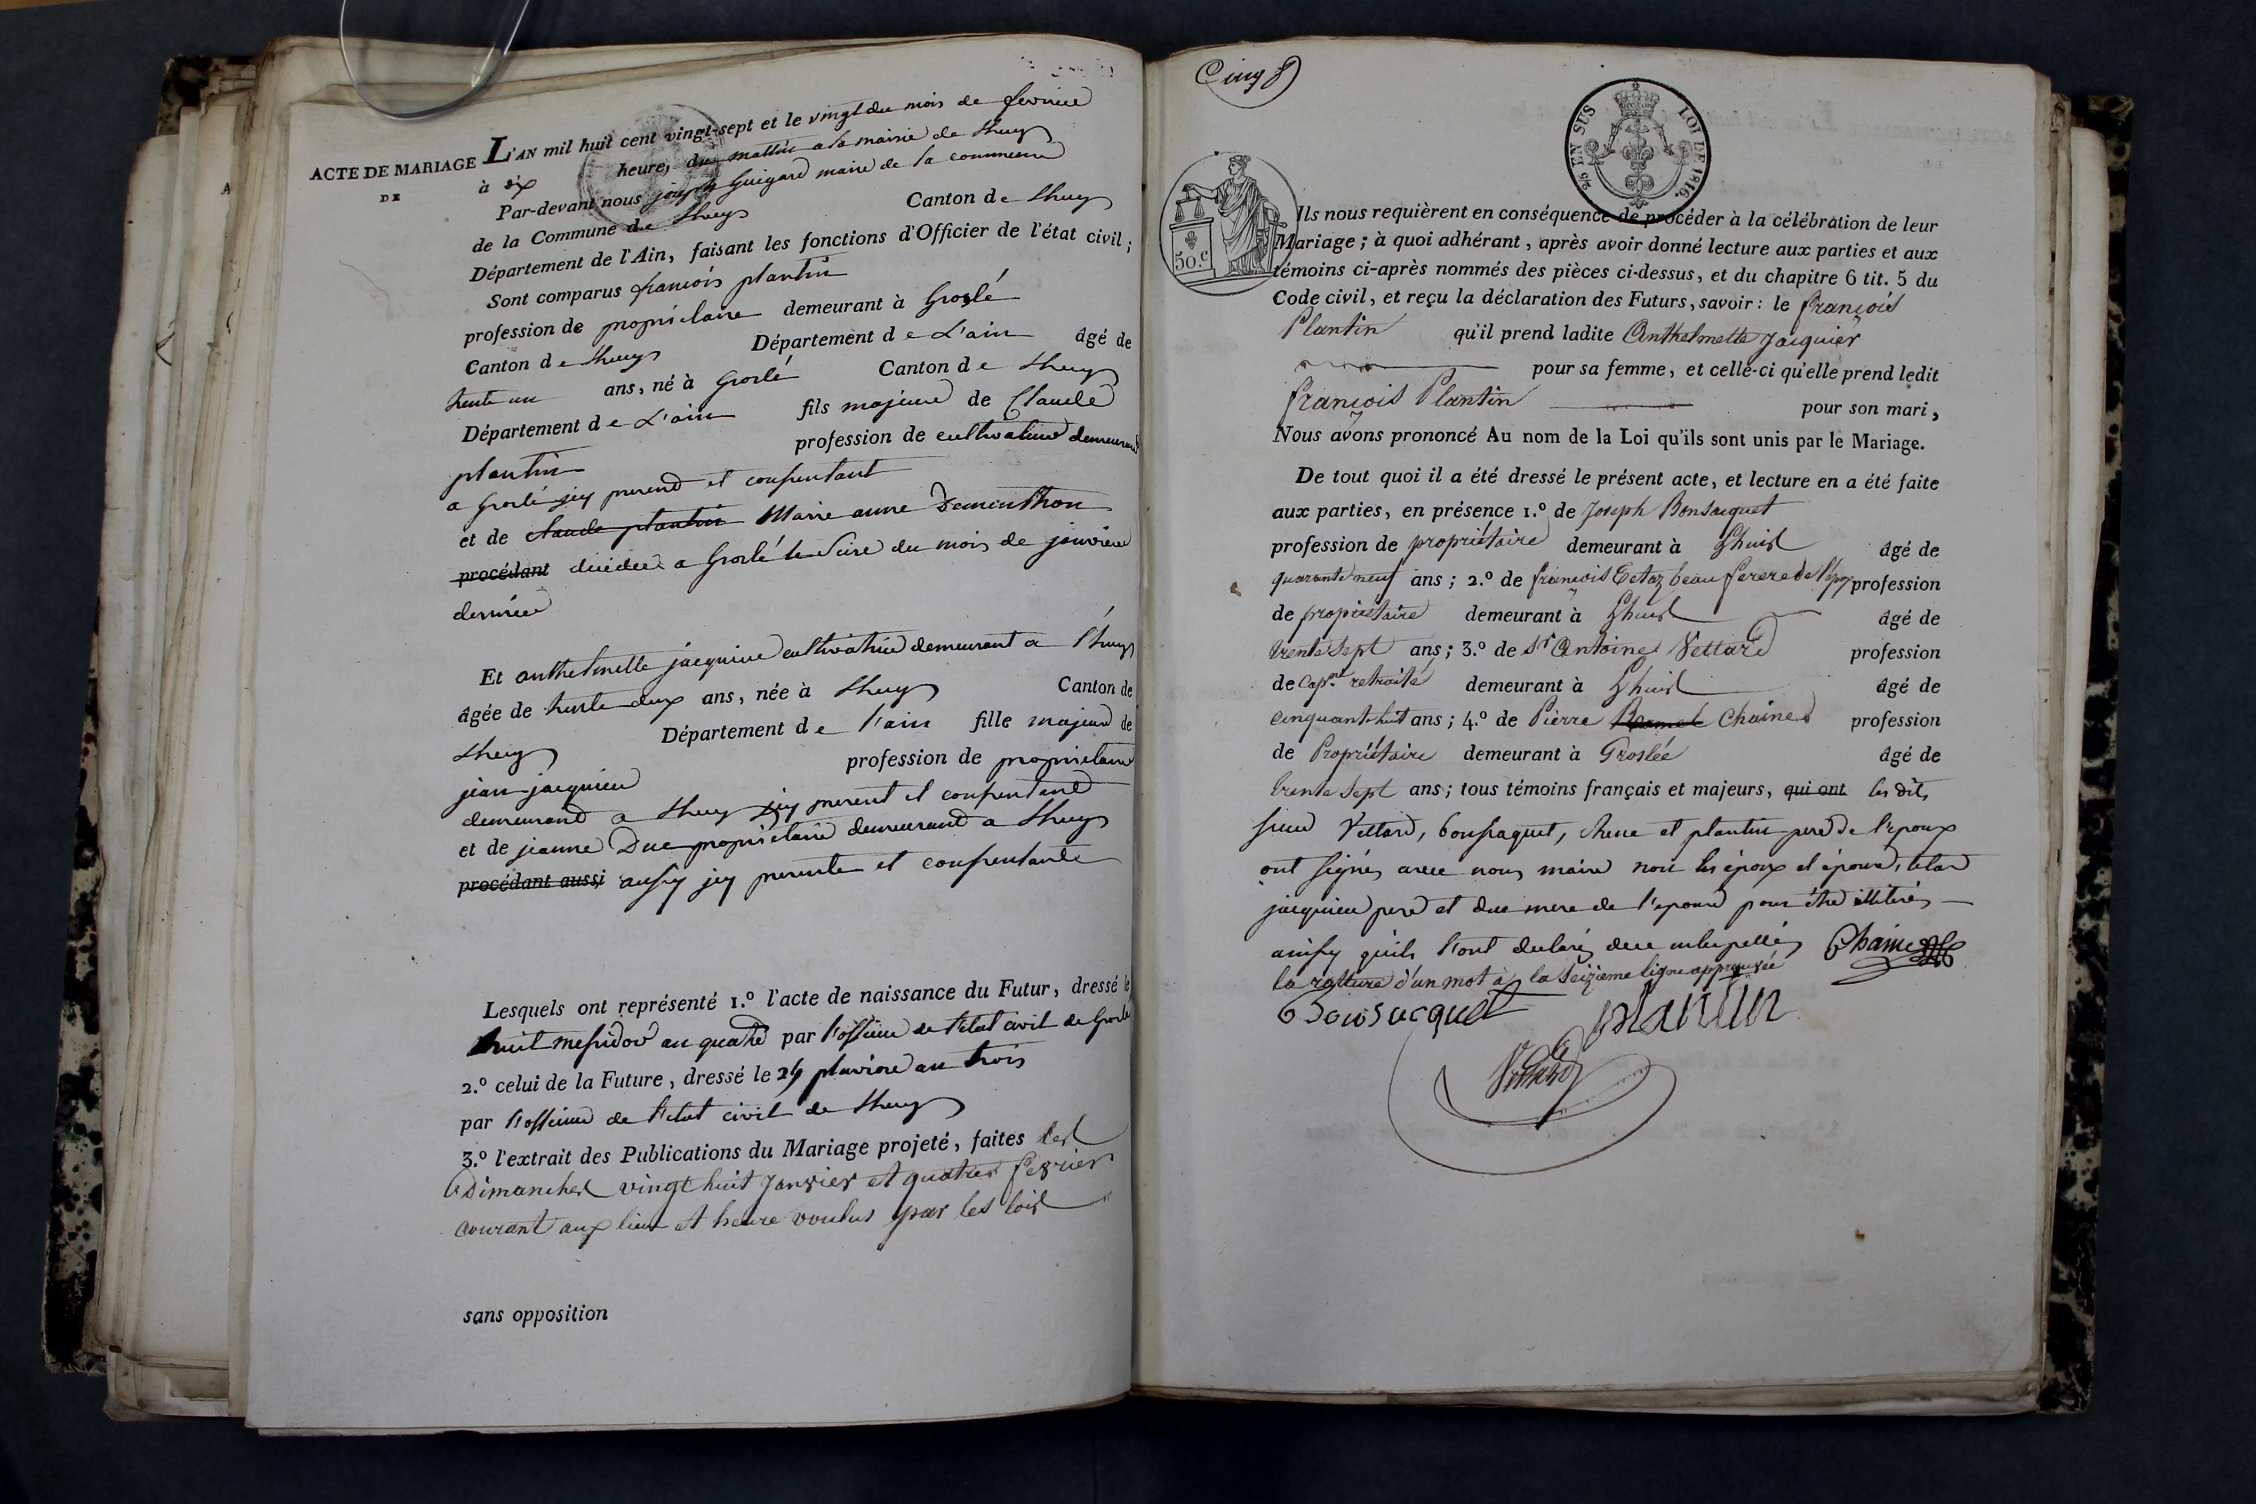 ACTE DE MARIAGE
DE
L'AN mil huit cent vingt-sept et le vingt du mois de fevrier
à six heure, du mattin a la mairie de Lhuys
Par-devant nous joseph Guigard maire de la commune
de la Commune de Lhuys Canton de Lhuys
Département de l'Ain, faisant les fonctions d'Officier de l'état civil;
Sont comparus francois plantin
profession de propriétaire demeurant à Groslé
Canton de Lhuys Département de L'ain âgé de
trente un ans, né à Groslé Canton de Lhuys
Département de L'ain fils majeur de Claude
plantin profession de cultivateur demeurant
a Groslé jcy present et consentant
et de claude plantin Marie anne Dementhon
procédant décédée a Groslé le seize du mois de janvier
dernier
Et anthelmette jacquier cultivatrice demeurant a Lhuys
âgée de trente deux ans, née à Lhuys Canton de
Lhuys Département de l'ain fille majeure de
jean jacquier profession de propriétaire
demeurant a Lhuys jcy present et consentant
et de jeanne Duc propriétaire demeurant a Lhuys
procédant aussi aussy jcy presente et consentante
Lesquels ont représenté 1.º l'acte de naissance du Futur, dressé le
huit messidor an quatre par l'officier de l'état civil de Groslé
2.º celui de la Future, dressé le 24 pluviose an trois
par l'officier de l'état civil de Lhuys
3.º l'extrait des Publications du Mariage projeté, faites les
Dimanches vingt huit Janvier et quatres fevrier
courant aux lieu et heure voulus par les lois
sans opposition
Cinq
2/5 EN SUS LOI DE 1816.
50.c
Ils nous requièrent en conséquence de procéder à la célébration de leur
Mariage; à quoi adhérant, après avoir donné lecture aux parties et aux
témoins ci-après nommés des pièces ci-dessus, et du chapitre 6 tit. 5 du
Code civil, et reçu la déclaration des Futurs, savoir: le françois
Plantin qu'il prend ladite Anthelmette Jacquier
pour sa femme, et celle-ci qu'elle prend ledit
françois Plantin pour son mari,
Nous avons prononcé Au nom de la Loi qu'ils sont unis par le Mariage.
De tout quoi il a été dressé le présent acte, et lecture en a été faite
aux parties, en présence 1.º de Joseph Bonsacquet
profession de propriétaire demeurant à Lhuis âgé de
quarante neuf ans; 2.º de françois Tetaz beau frere de l'épx profession
de propriétaire demeurant à Lhuis âgé de
trente sept ans; 3.º de Sr Antoine Vettard profession
de Capne retraité demeurant à Lhuis âgé de
cinquante huit ans; 4.º de Pierre Chaine profession
de Propriétaire demeurant à Groslée âgé de
trente sept ans; tous témoins français et majeurs, qui ont les dits
sieur Vettard, bonsaquet, chene et plantin pere de l'epoux
ont signés avec nous maire non les époux et épouse, tetaz
jacquier pere et duc mere de l'epouse pour être illitérés
ainsy qu'ils l'ont declaré de ce interpellés Chaine
la rature d'un mot à la seizieme ligne approuvée
Bonsacquet plantin
Vettard